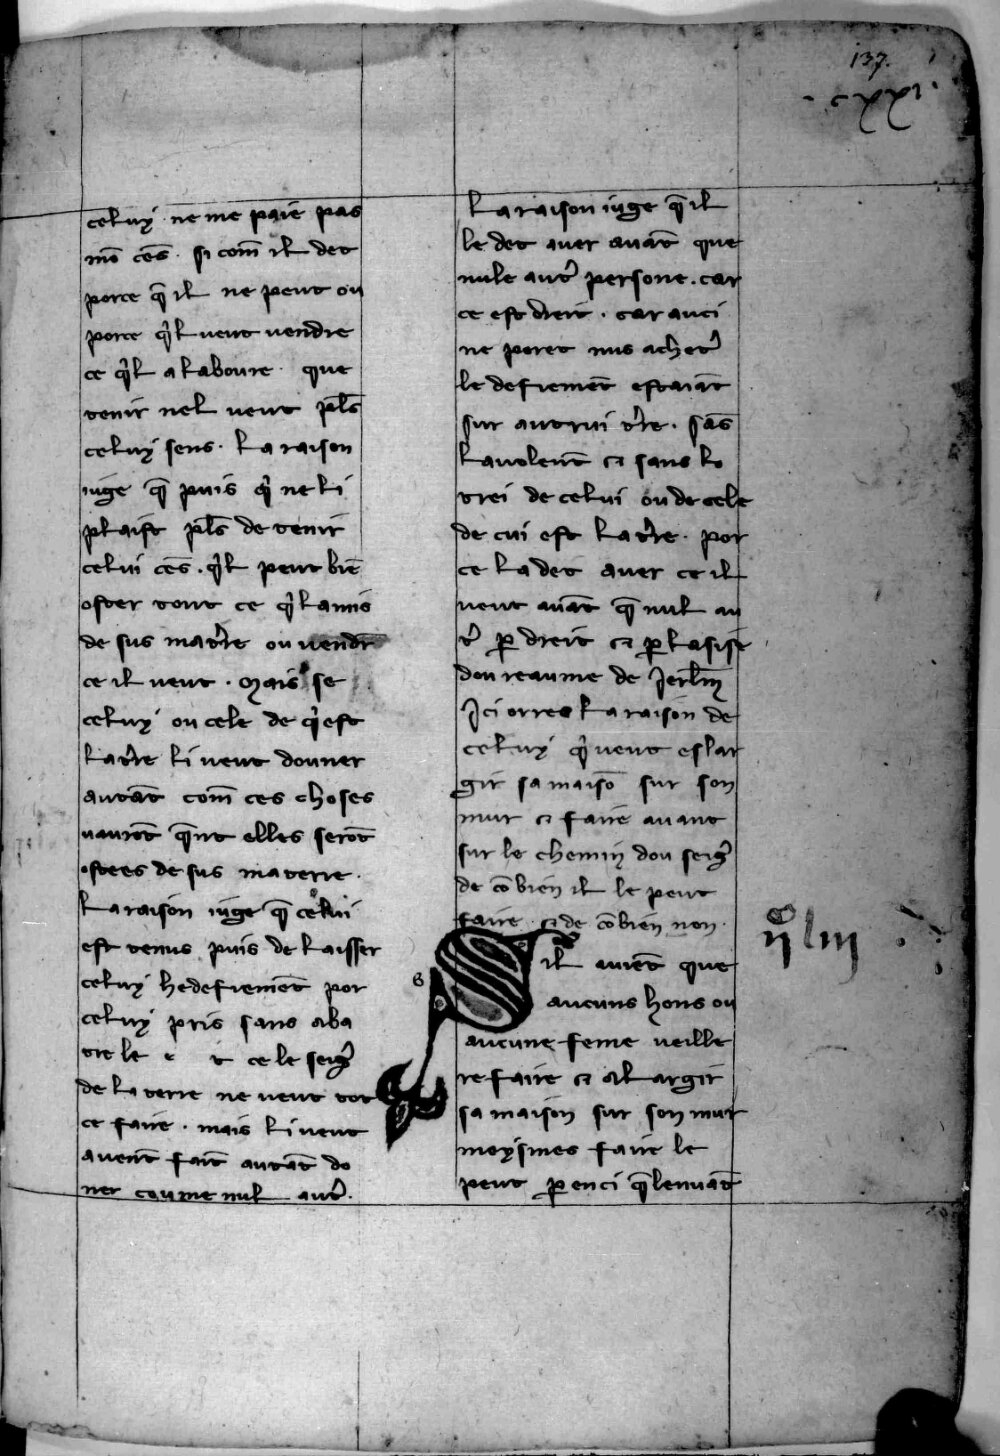 137.
.cxxi.
celuy ne me paie pas
mō cēs. si com̄ il det
porce q̄ il ne peut ou
porce q̇l veut vendre
ce q̇l a laboure. que
tenir nel veut pl̄s
celuy sens. La raison
iuge q̄ puis q̇ ne li
plaist pl̄s de tenir
celui cēs. q̇l peut biē
oster tout ce q̇l a mis
de sus ma tr̄re ou vendr̄
ce il veut. Mais se
celuy ou cele de q̇ est
la tr̄re li veut donner
autāt com̄ ces choses
vaurōt q̄nt elles serōt
ostees de sus ma terre.
La raison iuge q̄ celui
est tenus puis de laisser
celuy hedefiemēt por
celuy pris sans aba
tre le t ce le seigr̄
de la terre ne veut tot
ce faire. mais li veut
avent faīt autāt do
ner coume nul autr̄.
La raison iuge q̄ il
le det aver avāt que
nule autr̄ persone. car
ce est dreit. car auci
ne poret nus acheter̄
le defiemēt estaiāt
sur autrui tr̄re. sās
la volent̄ et sans lo
trei de celui ou de cele
de cui est la tr̄re. por
ce la det aver ce il
veut avāt q̄ nul au
tr̄ ꝑ dreit et ꝑ lasise
dou reaume de Jerl̄m
Ici orres la raison de
celuy q̇ veut eslar
gir sa maisō sur son
mur et faire avant
sur le chemin dou seigr̄
de cōbien il le peut
faire et de cōbien non.
Sil avient que
aucuns hons ou
aucune feme veille
refaire et alargir
sa maison sur son mur
moysmes faire le
peut ꝑ enci q̄ lenvāt